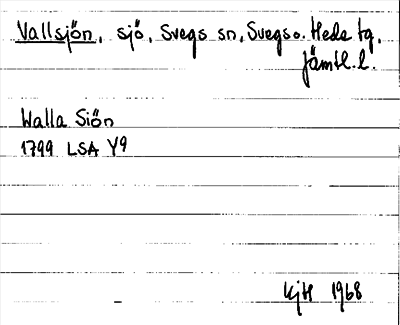 Vallsjön, sjö, Svegs sn, Svegs o. Hede tg,
Jämtl. l.
Walla Siön
1799 LSA Y9
KjH 1968